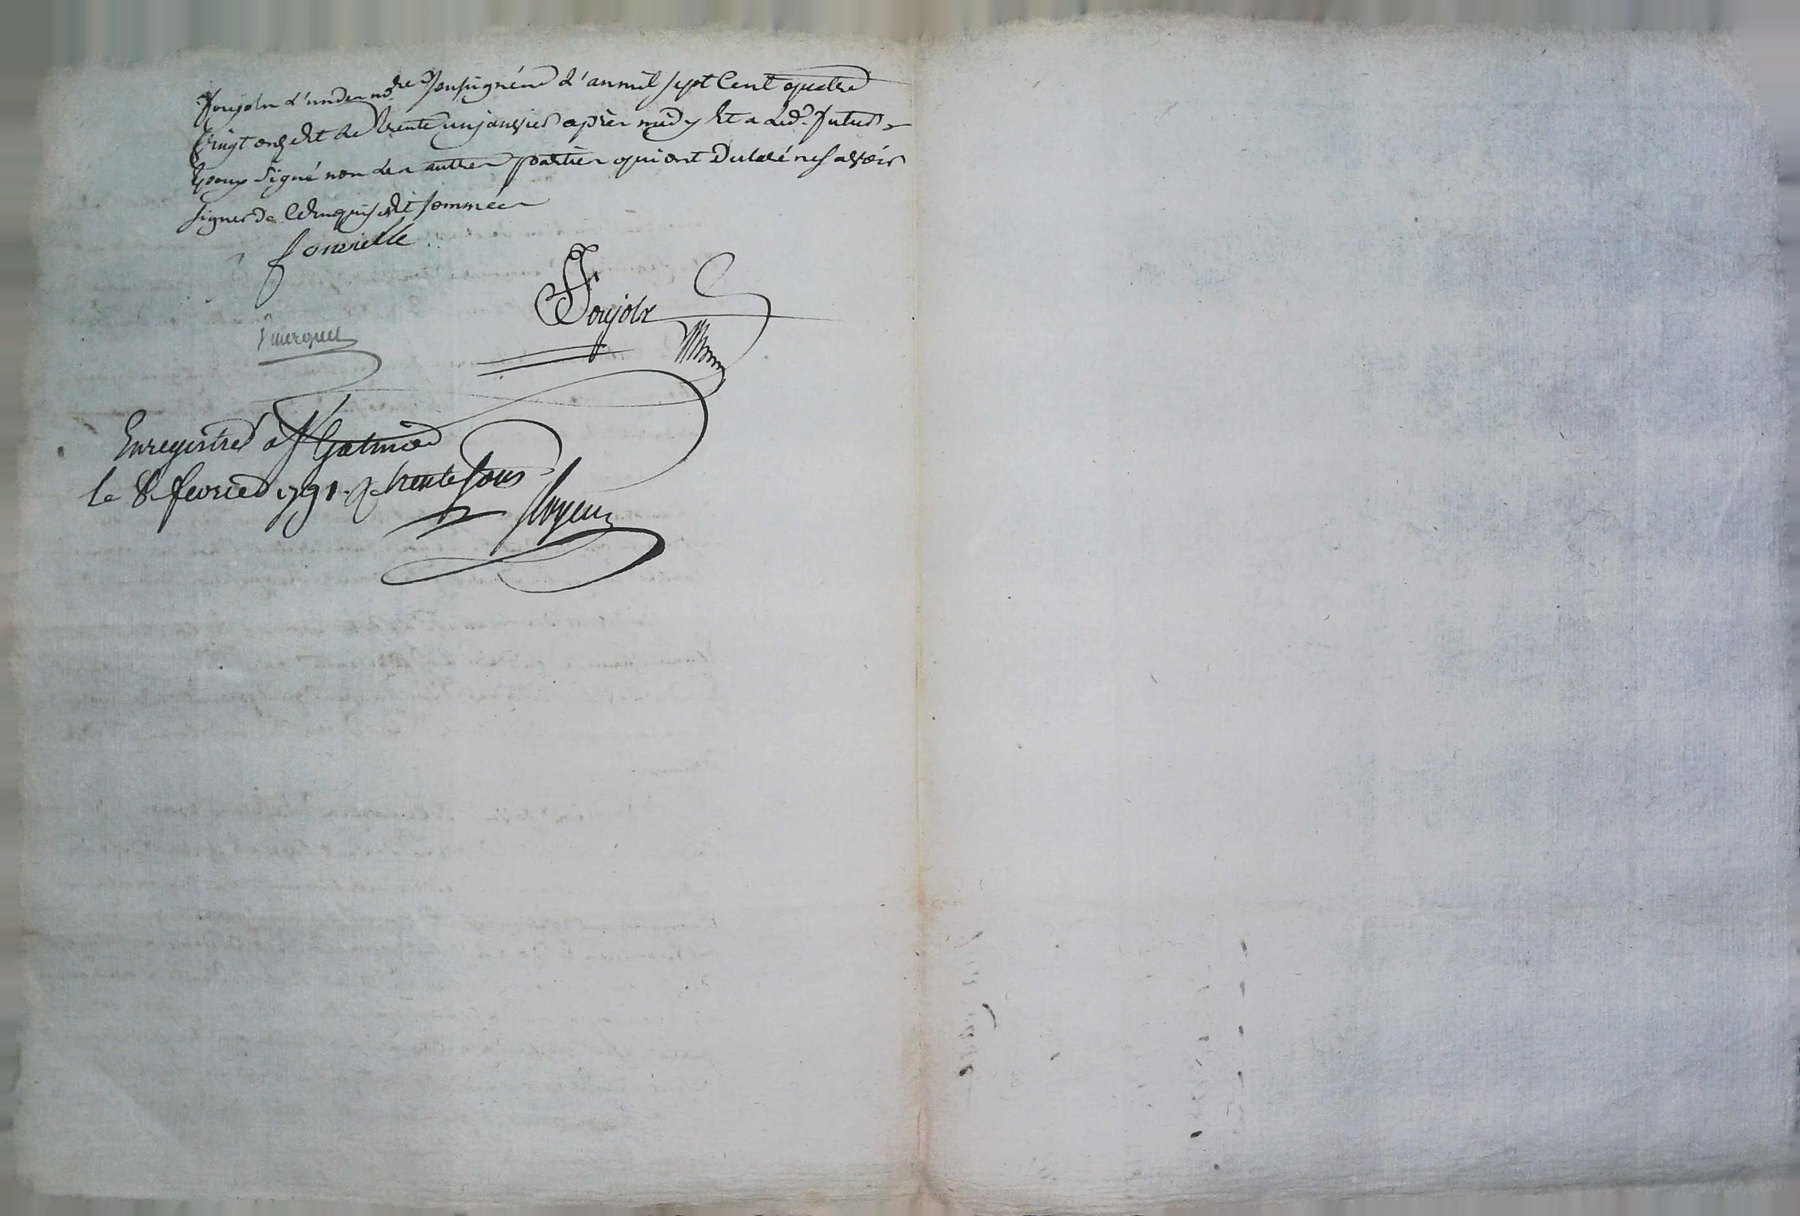 Poujolx l'un des nores soussignés l'an mil sept Cent quatre
Vingt onze Et le trente un janvier après midy Et a led. futur
Epoux signé non les autres parties qui ont Declaré ne sçavoir
signer de Ce Enquis Et sommées
fonvielle
Poujolx
Enregistré a St Galmier
le 8 fevrier 1791. R trente sous